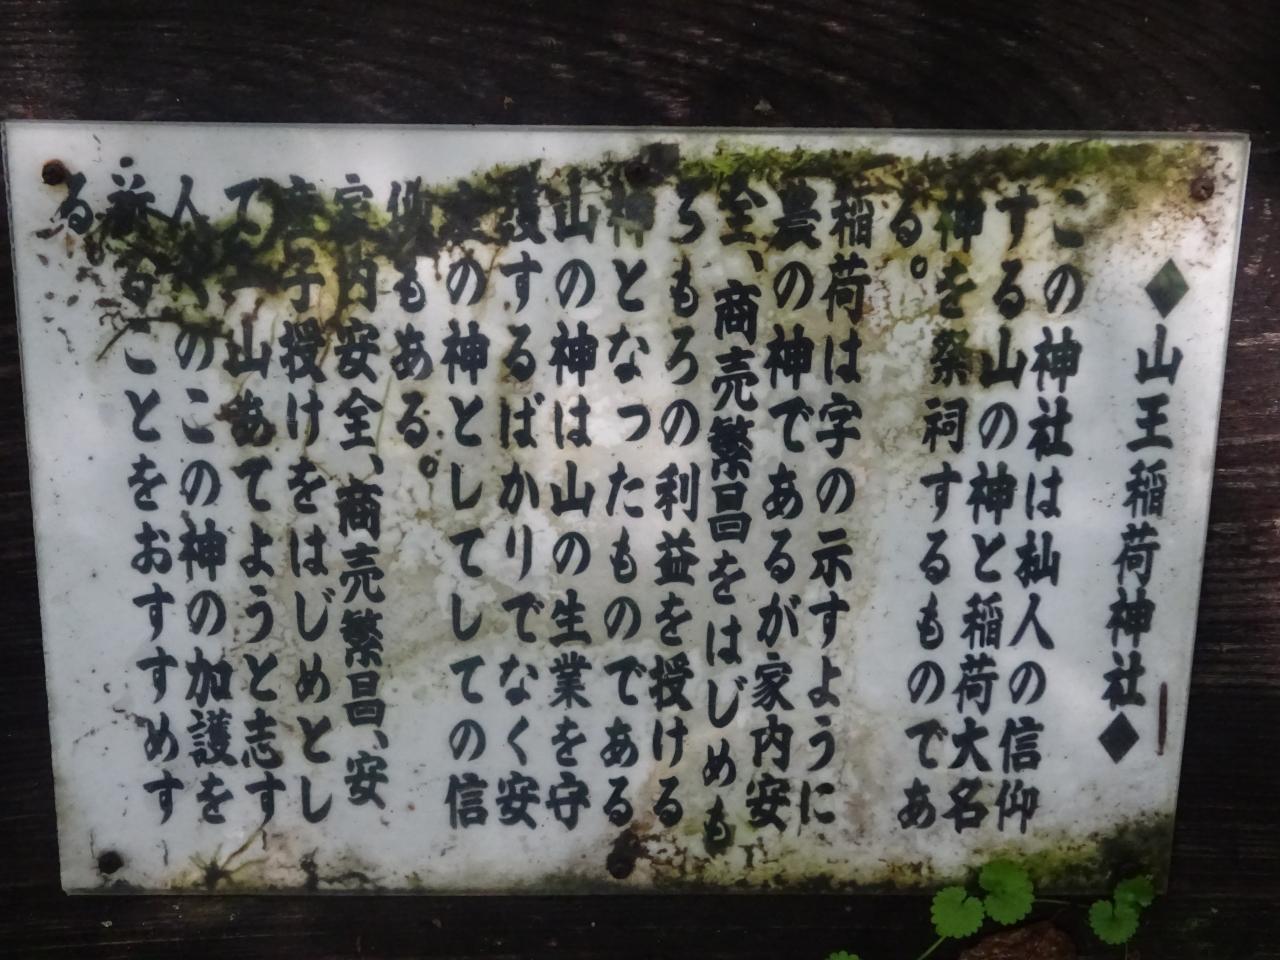 ◆山王稲荷神社◆
この神社は杣人の信仰
する山の神と稲荷大名
神を祭祠するものであ
る。
稲荷は字の示すように
農の神であるが家内安
全、商売繁昌をはじめも
ろもろの利益を授ける
神となったものである
山の神は山の生業を守
護するばかりでなく安
の神としてしての信
仰もある。
家内安全、商売繁昌、安
産子授けをはじめとし
て 山あてようと志す
人々のこの神の加護を
祈ることをおすすめす
る。